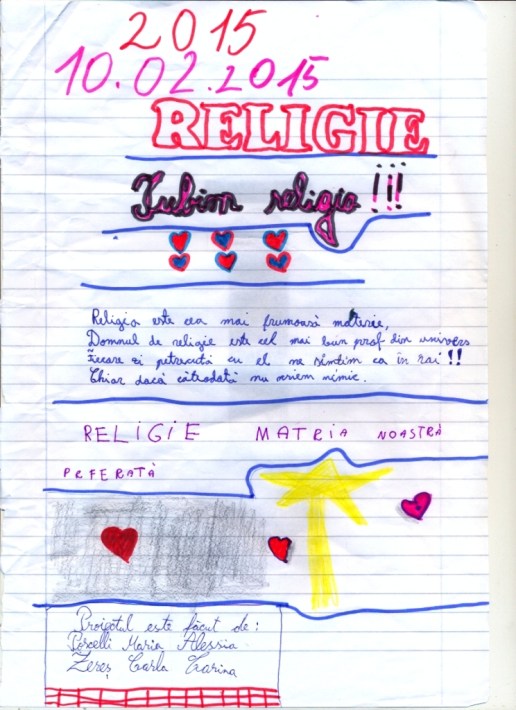 2015
10.02.2015
RELIGIE
Iubim religia !!!
Religia este cea mai frumoasă materie,
Domnul de religie este cel mai bun prof din univers
Fiecare zi petrecută cu el ne simțim ca în rai !!
Chiar dacă câtrodată nu scriem nimic.
RELIGIE MATRIA NOASTRĂ
PRFERATĂ
Proiectul este făcut de :
Porcelli Maria Alessia
Zereș Carla Carina